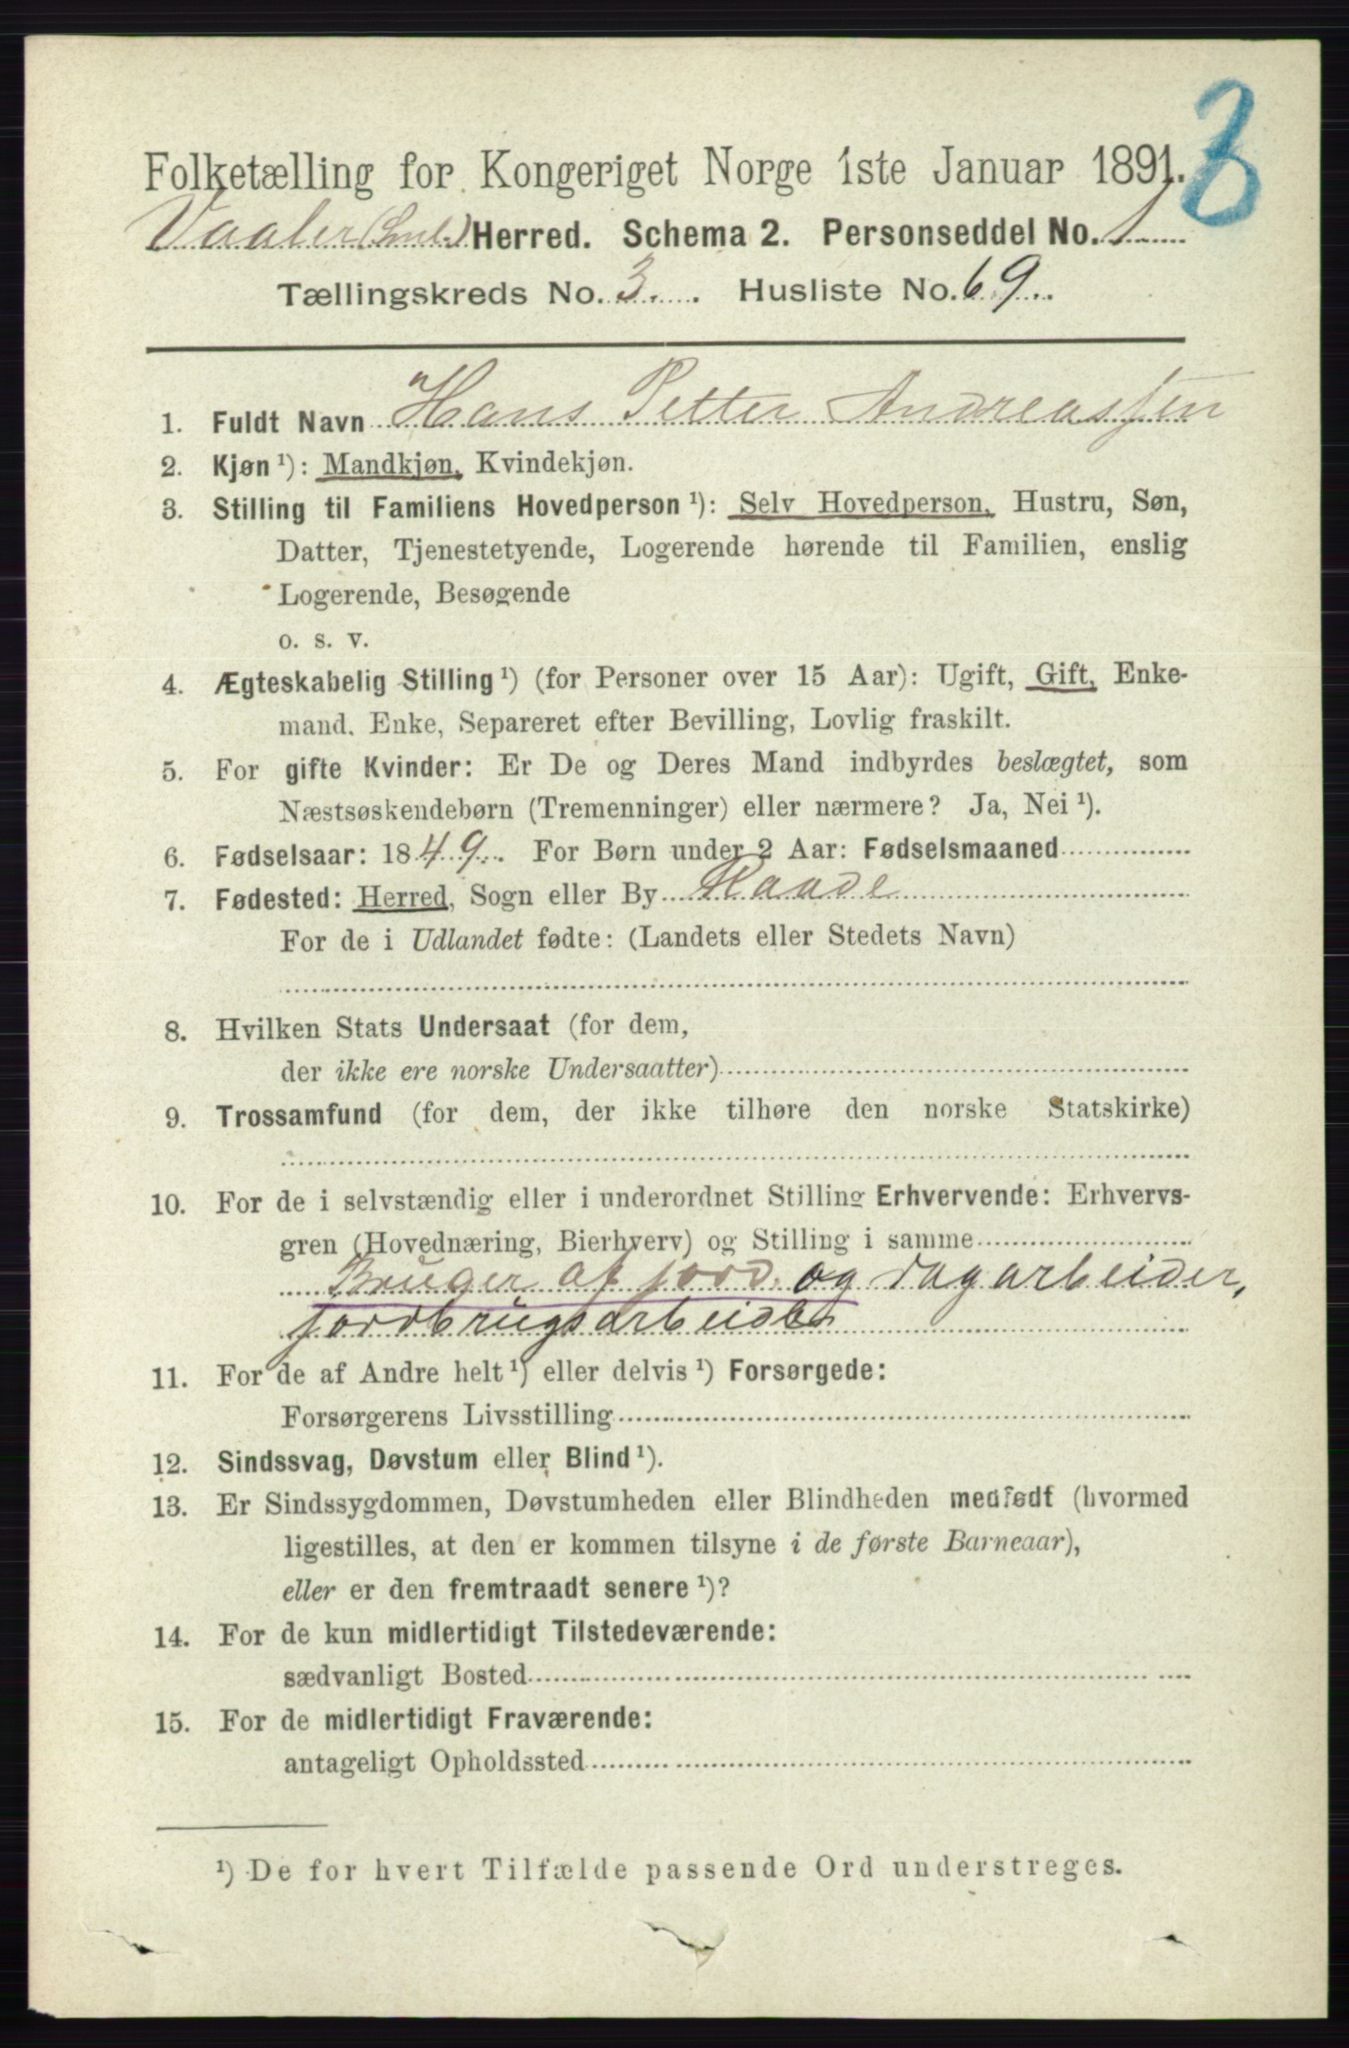 3
Folketælling for Kongeriget Norge 1ste Januar 1891.
Vaaler (Sml.) Herred. Schema 2. Personseddel No. 1
Tællingskreds No. 3. Husliste No. 69.
1. Fuldt Navn Hans Petter Andreassen
2. Kjøn ¹): Mandkjøn, Kvindekjøn.
3. Stilling til Familiens Hovedperson ¹): Selv Hovedperson, Hustru, Søn,
Datter, Tjenestetyende, Logerende hørende til Familien, enslig
Logerende, Besøgende
o. s. v.
4. Ægteskabelig Stilling ¹) (for Personer over 15 Aar): Ugift, Gift, Enke-
mand, Enke, Separeret efter Bevilling, Lovlig fraskilt.
5. For gifte Kvinder: Er De og Deres Mand indbyrdes beslægtet, som
Næstsøskendebørn (Tremenninger) eller nærmere? Ja, Nei ¹).
6. Fødselsaar: 1849. For Børn under 2 Aar: Fødselsmaaned
7. Fødested: Herred, Sogn eller By Raade
For de i Udlandet fødte: (Landets eller Stedets Navn)
8. Hvilken Stats Undersaat (for dem,
der ikke ere norske Undersaatter)
9. Trossamfund (for dem, der ikke tilhøre den norske Statskirke)
10. For de i selvstændig eller i underordnet Stilling Erhvervende: Erhvervs-
gren (Hovednæring, Bierhverv) og Stilling i samme
Bruger af jord. og dagarbeider,
jordbrugsarbeider
11. For de af Andre helt ¹) eller delvis ¹) Forsørgede:
Forsørgerens Livsstilling
12. Sindssvag, Døvstum eller Blind ¹).
13. Er Sindssygdommen, Døvstumheden eller Blindheden medfødt (hvormed
ligestilles, at den er kommen tilsyne i de første Barneaar),
eller er den fremtraadt senere ¹)?
14. For de kun midlertidigt Tilstedeværende:
sædvanligt Bosted
15. For de midlertidigt Fraværende:
antageligt Opholdssted
¹) De for hvert Tilfælde passende Ord understreges.